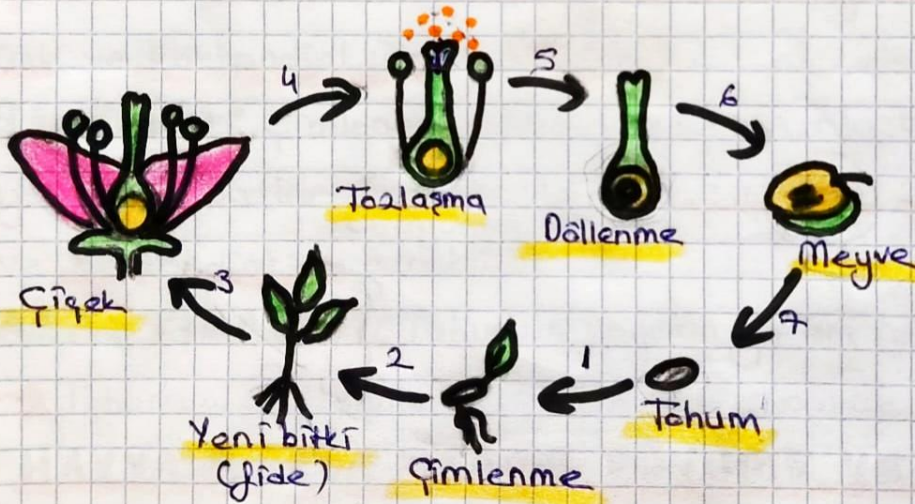 4
5
6
Tozlaşma
Döllenme
Meyve
3
Çiçek
7
2
1
Tohum
Yeni bitki
(fide)
Çimlenme